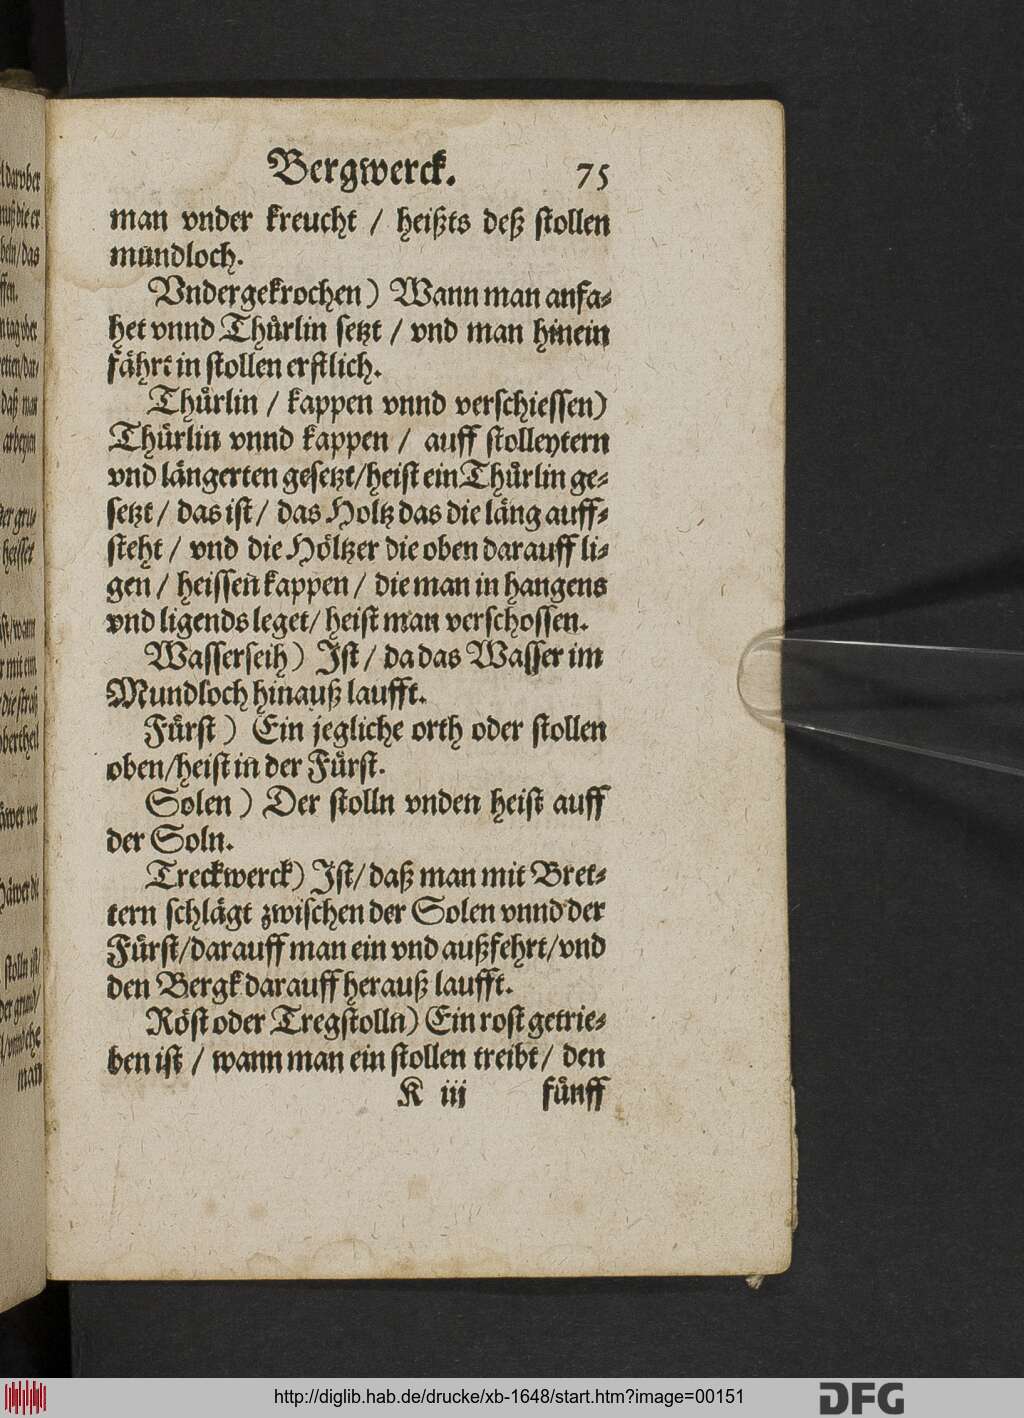 Bergwerck. 75
man vnder kreucht / heißts deß stollen
mundloch.
Vndergekrochen) Wann man anfa⸗
het vnnd Thuͤrlin setzt / vnd man hinein
faͤhrt in stollen erstlich.
Thuͤrlin / kappen vnnd verschiessen)
Thuͤrlin vnnd kappen / auff stolleytern
vnd laͤngerten gesetzt/heist ein Thuͤrlin ge⸗
setzt / das ist / das Holtz das die laͤng auff⸗
steht / vnd die Hoͤltzer die oben darauff li⸗
gen / heissen kappen / die man in hangens
vnd ligends leget/ heist man verschossen.
Wasserseih) Ist / da das Wasser im
Mundloch hinauß laufft.
Fuͤrst) Ein jegliche orth oder stollen
oben/heist in der Fuͤrst.
Solen) Der stolln vnden heist auff
der Soln.
Treckwerck) Ist/ daß man mit Bret⸗
tern schlaͤgt zwischen der Solen vnnd der
Fuͤrst/darauff man ein vnd außfehrt/vnd
den Bergk darauff herauß laufft.
Roͤst oder Tregstolln) Ein rost getrie⸗
ben ist / wann man ein stollen treibt/ den
K iii fuͤnff
http://diglib.hab.de/drucke/xb-1648/start.htm?image=00151
DFG